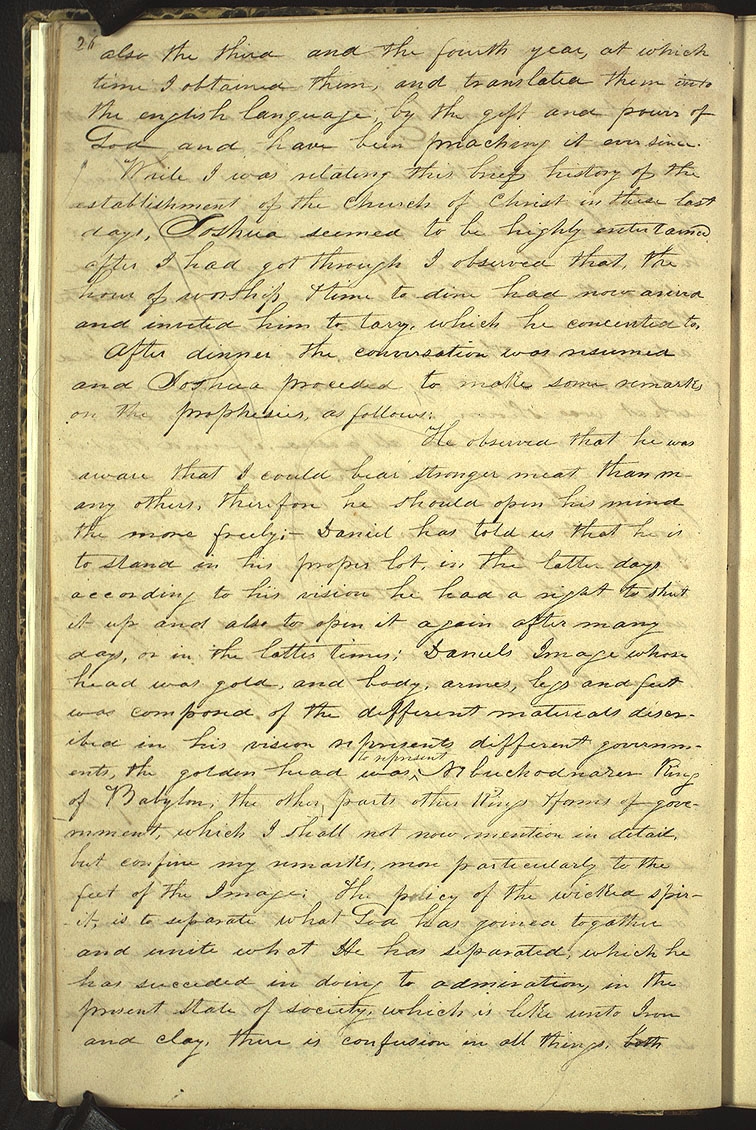 26
also the third and the fourth year, at which
time I obtained them, and translated them into
the english language; by the gift and power of
God and have been preaching it ever since.
While I was relating this brief history of the
establishment of the Church of Christ in these last
days, Joshua seemed to be highly entertained
after I had got through I observed that, the
hour of worship & time to dine had now arived
and invited him to tary, which he concented to,
After dinner the conversation was resumed
and Joshua proceded to make some remarks
on the prophesies, as follows:
He observed that he was
aware that I could bear stronger meat than m-
any others, therefore he should open his mind
the more freely;— Daniel has told us that he is
to stand in his proper lot, in the latter days
according to his vision he had a right to shut
it up and also to open it again after many
days, or in the latter times; Daniels Image whose
head was gold, and body, armes, legs and feet
was composed of the different materials discr-
ibed in his vision represents different governm-
ents, the golden head was, to represent Nebuchodnazer King
of Babylon, the other parts other kings & forms of gove-
rnment, which I shall not now mention in detail,
but confine my remarks, more particularly to the
feet of the Image; The policy of the wicked spir-
it, is to separate what God has joined togather
and unite what He has separated, which he
has succeded in doing to admiration, in the
present state of society, which is like unto Iron
and clay, there is confusion in all things, both